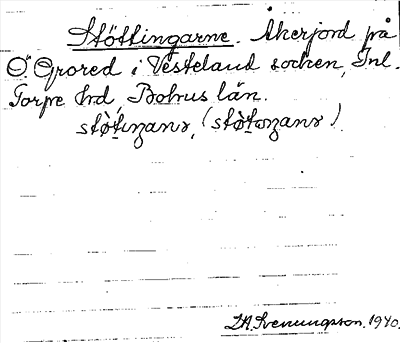 Stöttingarne. Åkerjord på
Ö. Grored i Vesteland socken, Inl.
Torpe hrd, Bohus län.
stø̀tiŋanɹ, (stø̀tɷŋanɹ)
S.A. Svenungsson. 1940.